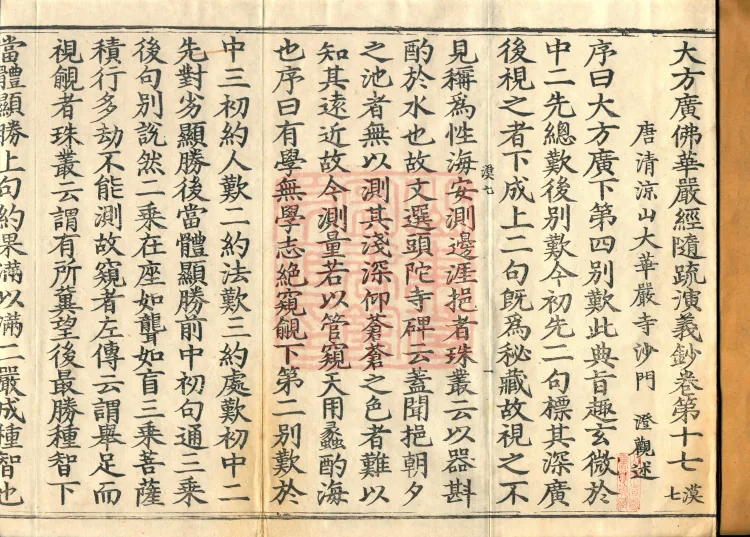 大方廣佛華嚴經隨疏演義鈔卷第十七 漠七
唐清涼山大華嚴寺沙門 澄觀述
序曰大方廣下第四別歎此典旨趣玄微於
中二先總歎後別歎今初先二句標其深廣
後視之者下成上二句旣爲秘藏故視之不
漠七 一
見稱爲性海安測邊涯挹者珠叢云以器斟
酌於水也故文選頭陀寺碑云蓋聞挹朝夕
之池者無以測其淺深仰蒼蒼之色者難以
知其遠近故今測量若以管窺天用蠡酌海
也序曰有學無學志絶窺覦下第二別歎於
中三初約人歎二約法歎三約處歎初中二
先對劣顯勝後當體顯勝前中初句通三乘
後句別說然二乘在座如聾如盲三乘菩薩
積行多劫不能測故窺者左傳云謂舉足而
視覦者珠叢云謂有所兾望後最勝種智下
當體顯勝上句約果滿以滿二嚴成種智也